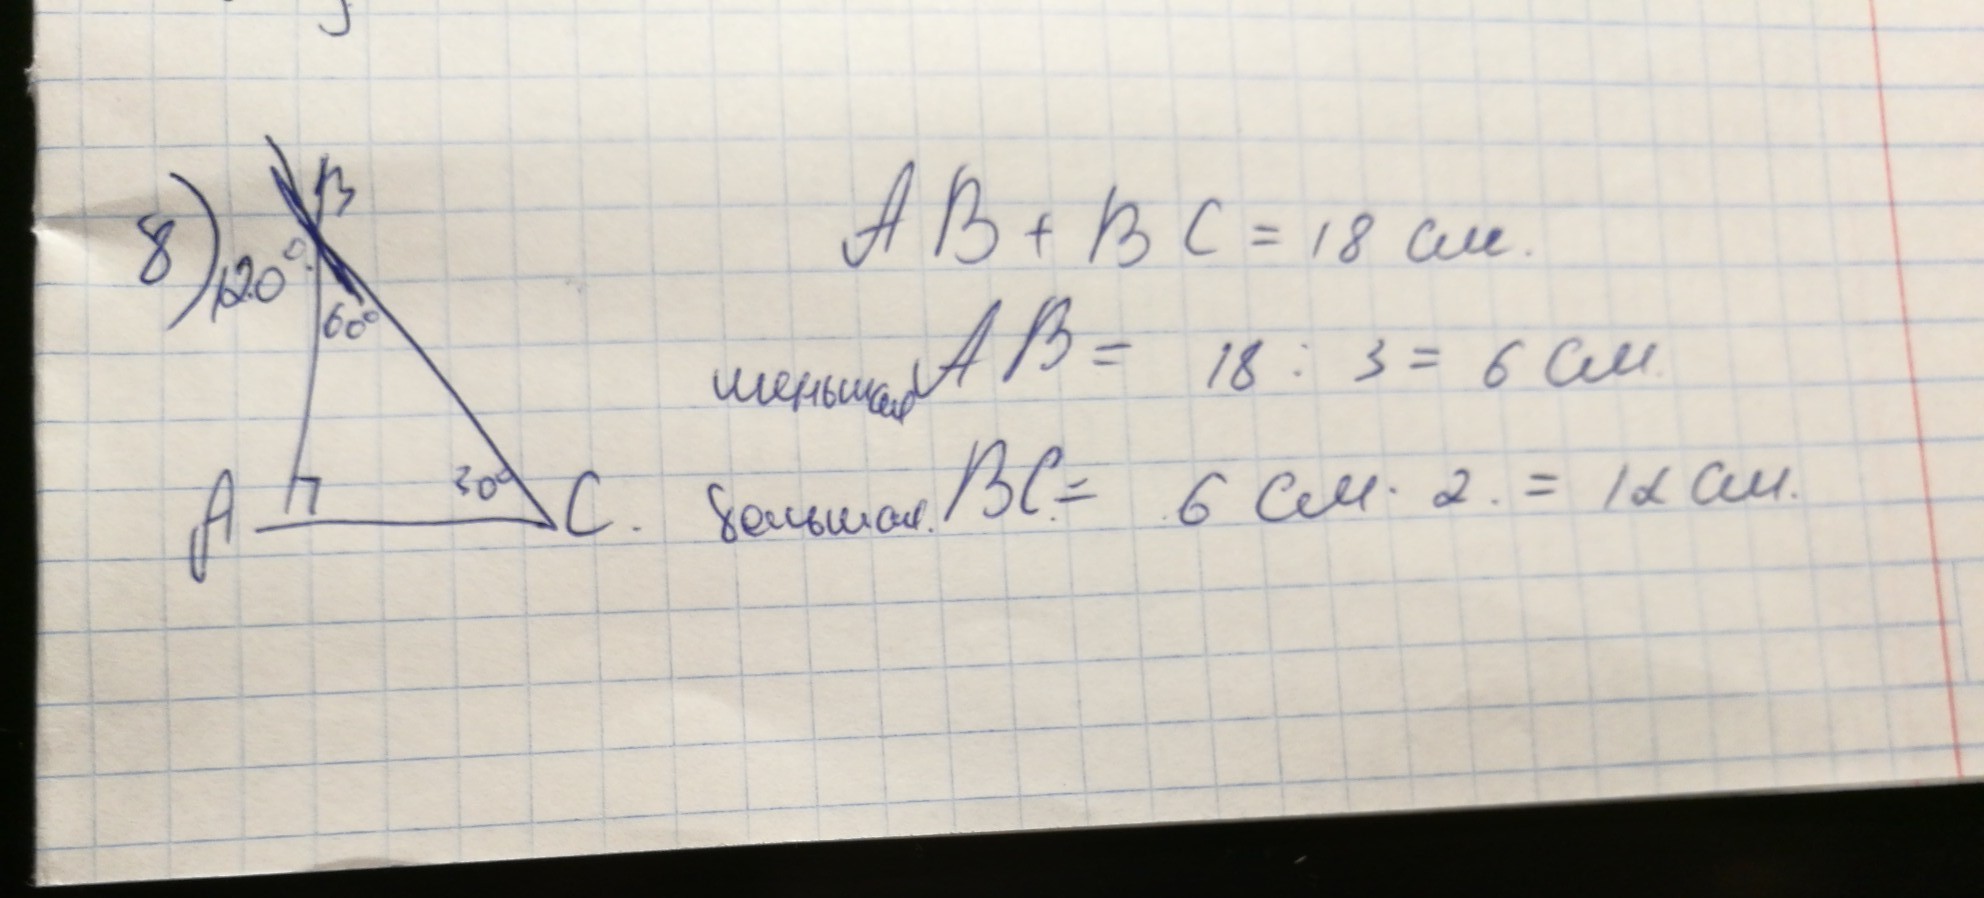 8)
B
120°
60°
A
30°
C.
AB + BC = 18 см.
меньшая AB = 18 : 3 = 6 см
большая. BC = 6 см · 2. = 12 см.